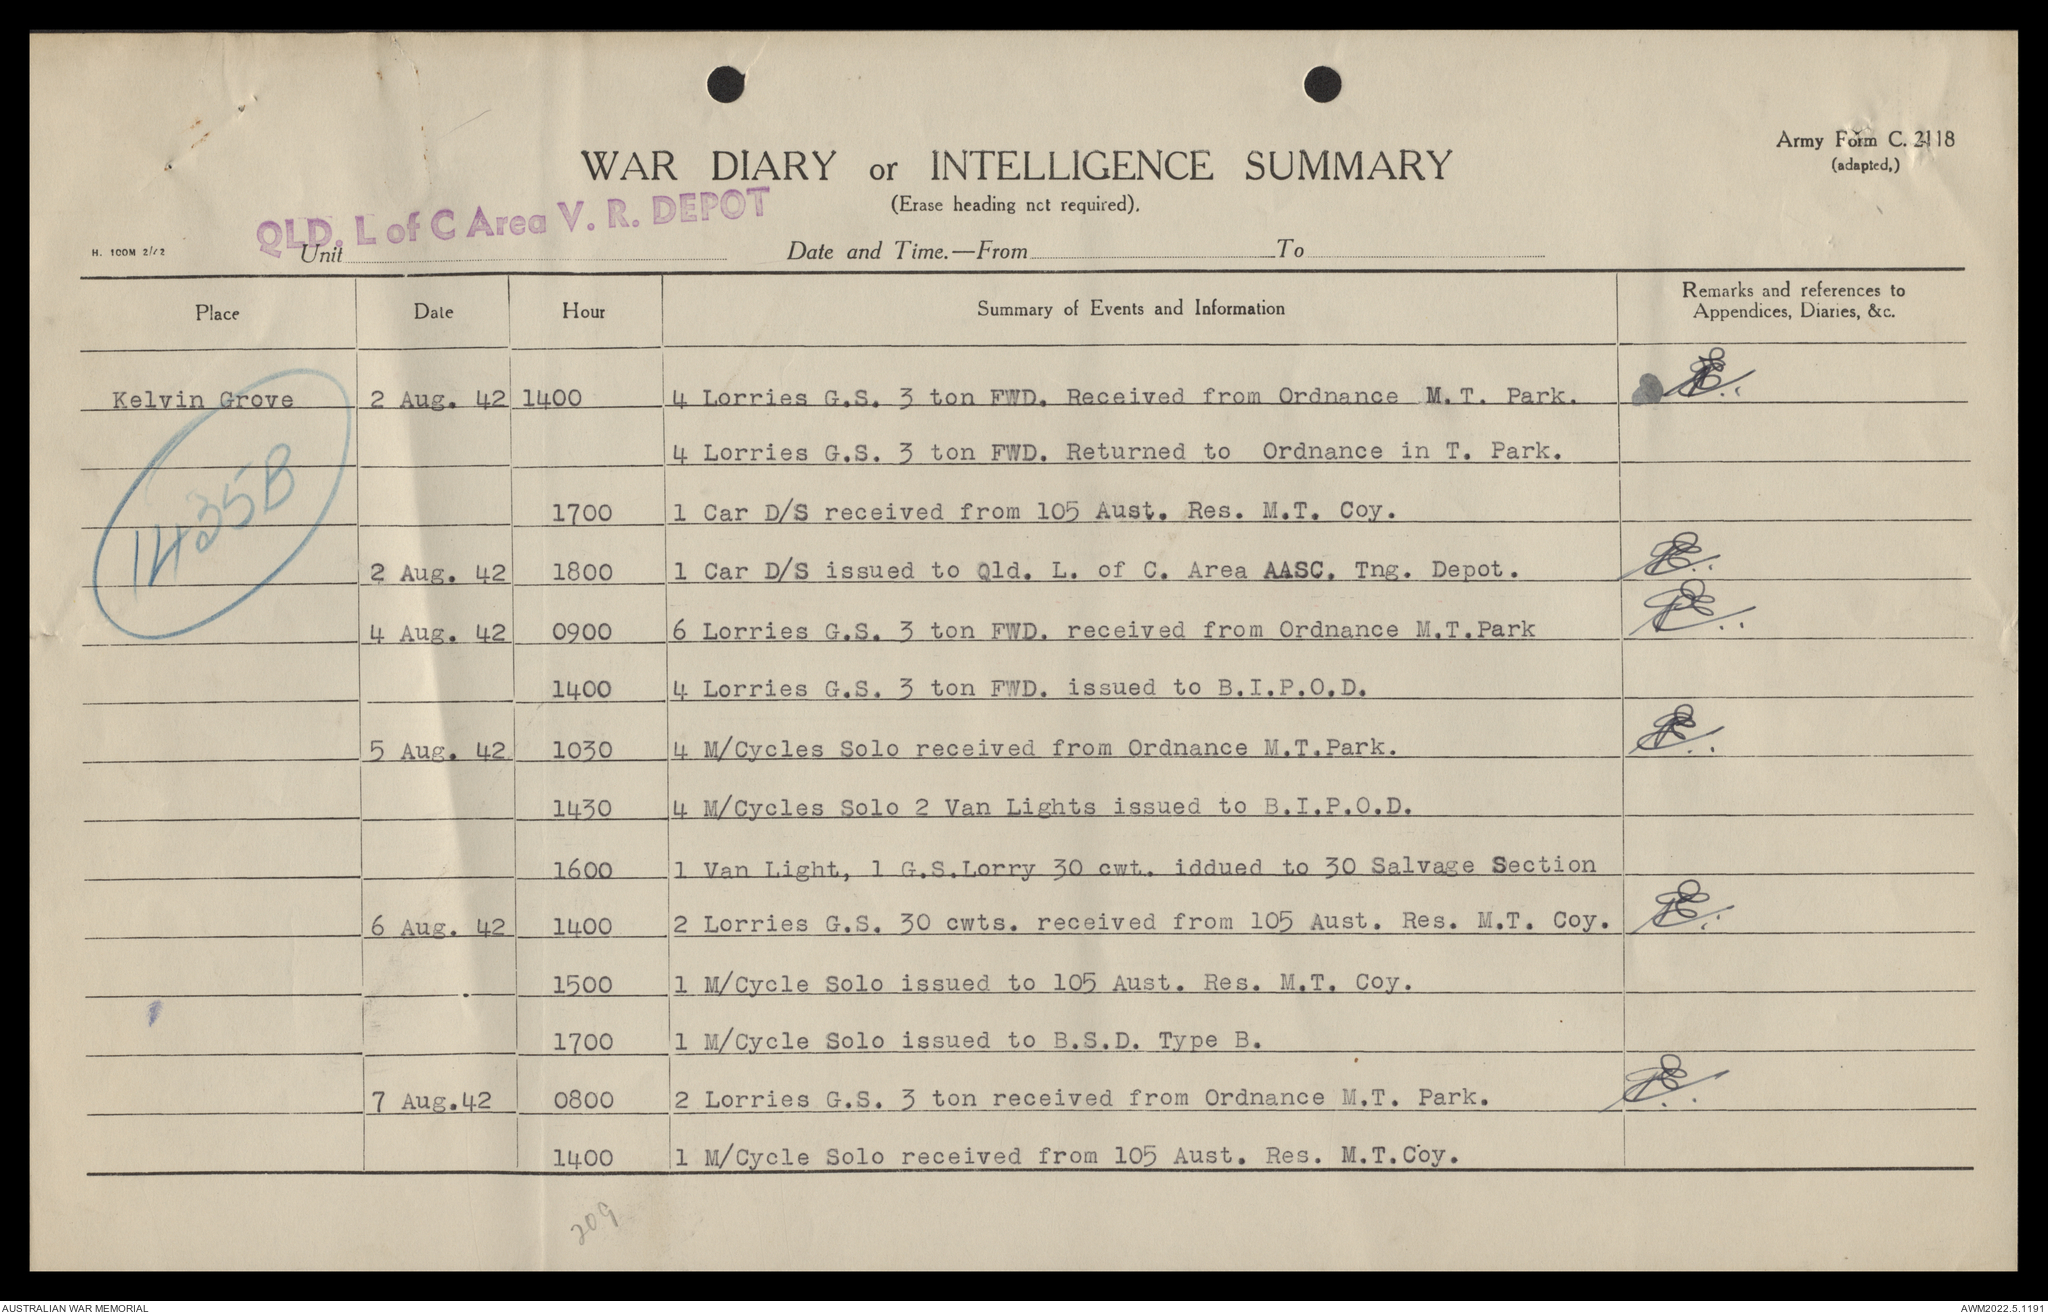 Army Form C. 2118
(adapted,)
WAR DIARY or INTELLIGENCE SUMMARY
(Erase heading not required).
QLD. L of C Area V. R. DEPOT
H. 100M 2/42
Unit Date and Time.—From To
Place Date Hour Summary of Events and Information Remarks and references to
Appendices, Diaries, &c.
Kelvin Grove 2 Aug. 42 1400 4 Lorries G.S. 3 ton FWD. Received from Ordnance M.T. Park.
4 Lorries G.S. 3 ton FWD. Returned to Ordnance in T. Park.
1435B
1700 1 Car D/S received from 105 Aust. Res. M.T. Coy.
2 Aug. 42 1800 1 Car D/S issued to Qld. L. of C. Area AASC. Tng. Depot.
4 Aug. 42 0900 6 Lorries G.S. 3 ton FWD. received from Ordnance M.T.Park
1400 4 Lorries G.S. 3 ton FWD. issued to B.I.P.O.D.
5 Aug. 42 1030 4 M/Cycles Solo received from Ordnance M.T.Park.
1430 4 M/Cycles Solo 2 Van Lights issued to B.I.P.O.D.
1600 1 Van Light, 1 G.S.Lorry 30 cwt. iddued to 30 Salvage Section
6 Aug. 42 1400 2 Lorries G.S. 30 cwts. received from 105 Aust. Res. M.T. Coy.
1500 1 M/Cycle Solo issued to 105 Aust. Res. M.T. Coy.
1700 1 M/Cycle Solo issued to B.S.D. Type B.
7 Aug.42 0800 2 Lorries G.S. 3 ton received from Ordnance M.T. Park.
1400 1 M/Cycle Solo received from 105 Aust. Res. M.T.Coy.
209
AUSTRALIAN WAR MEMORIAL AWM2022.5.1191